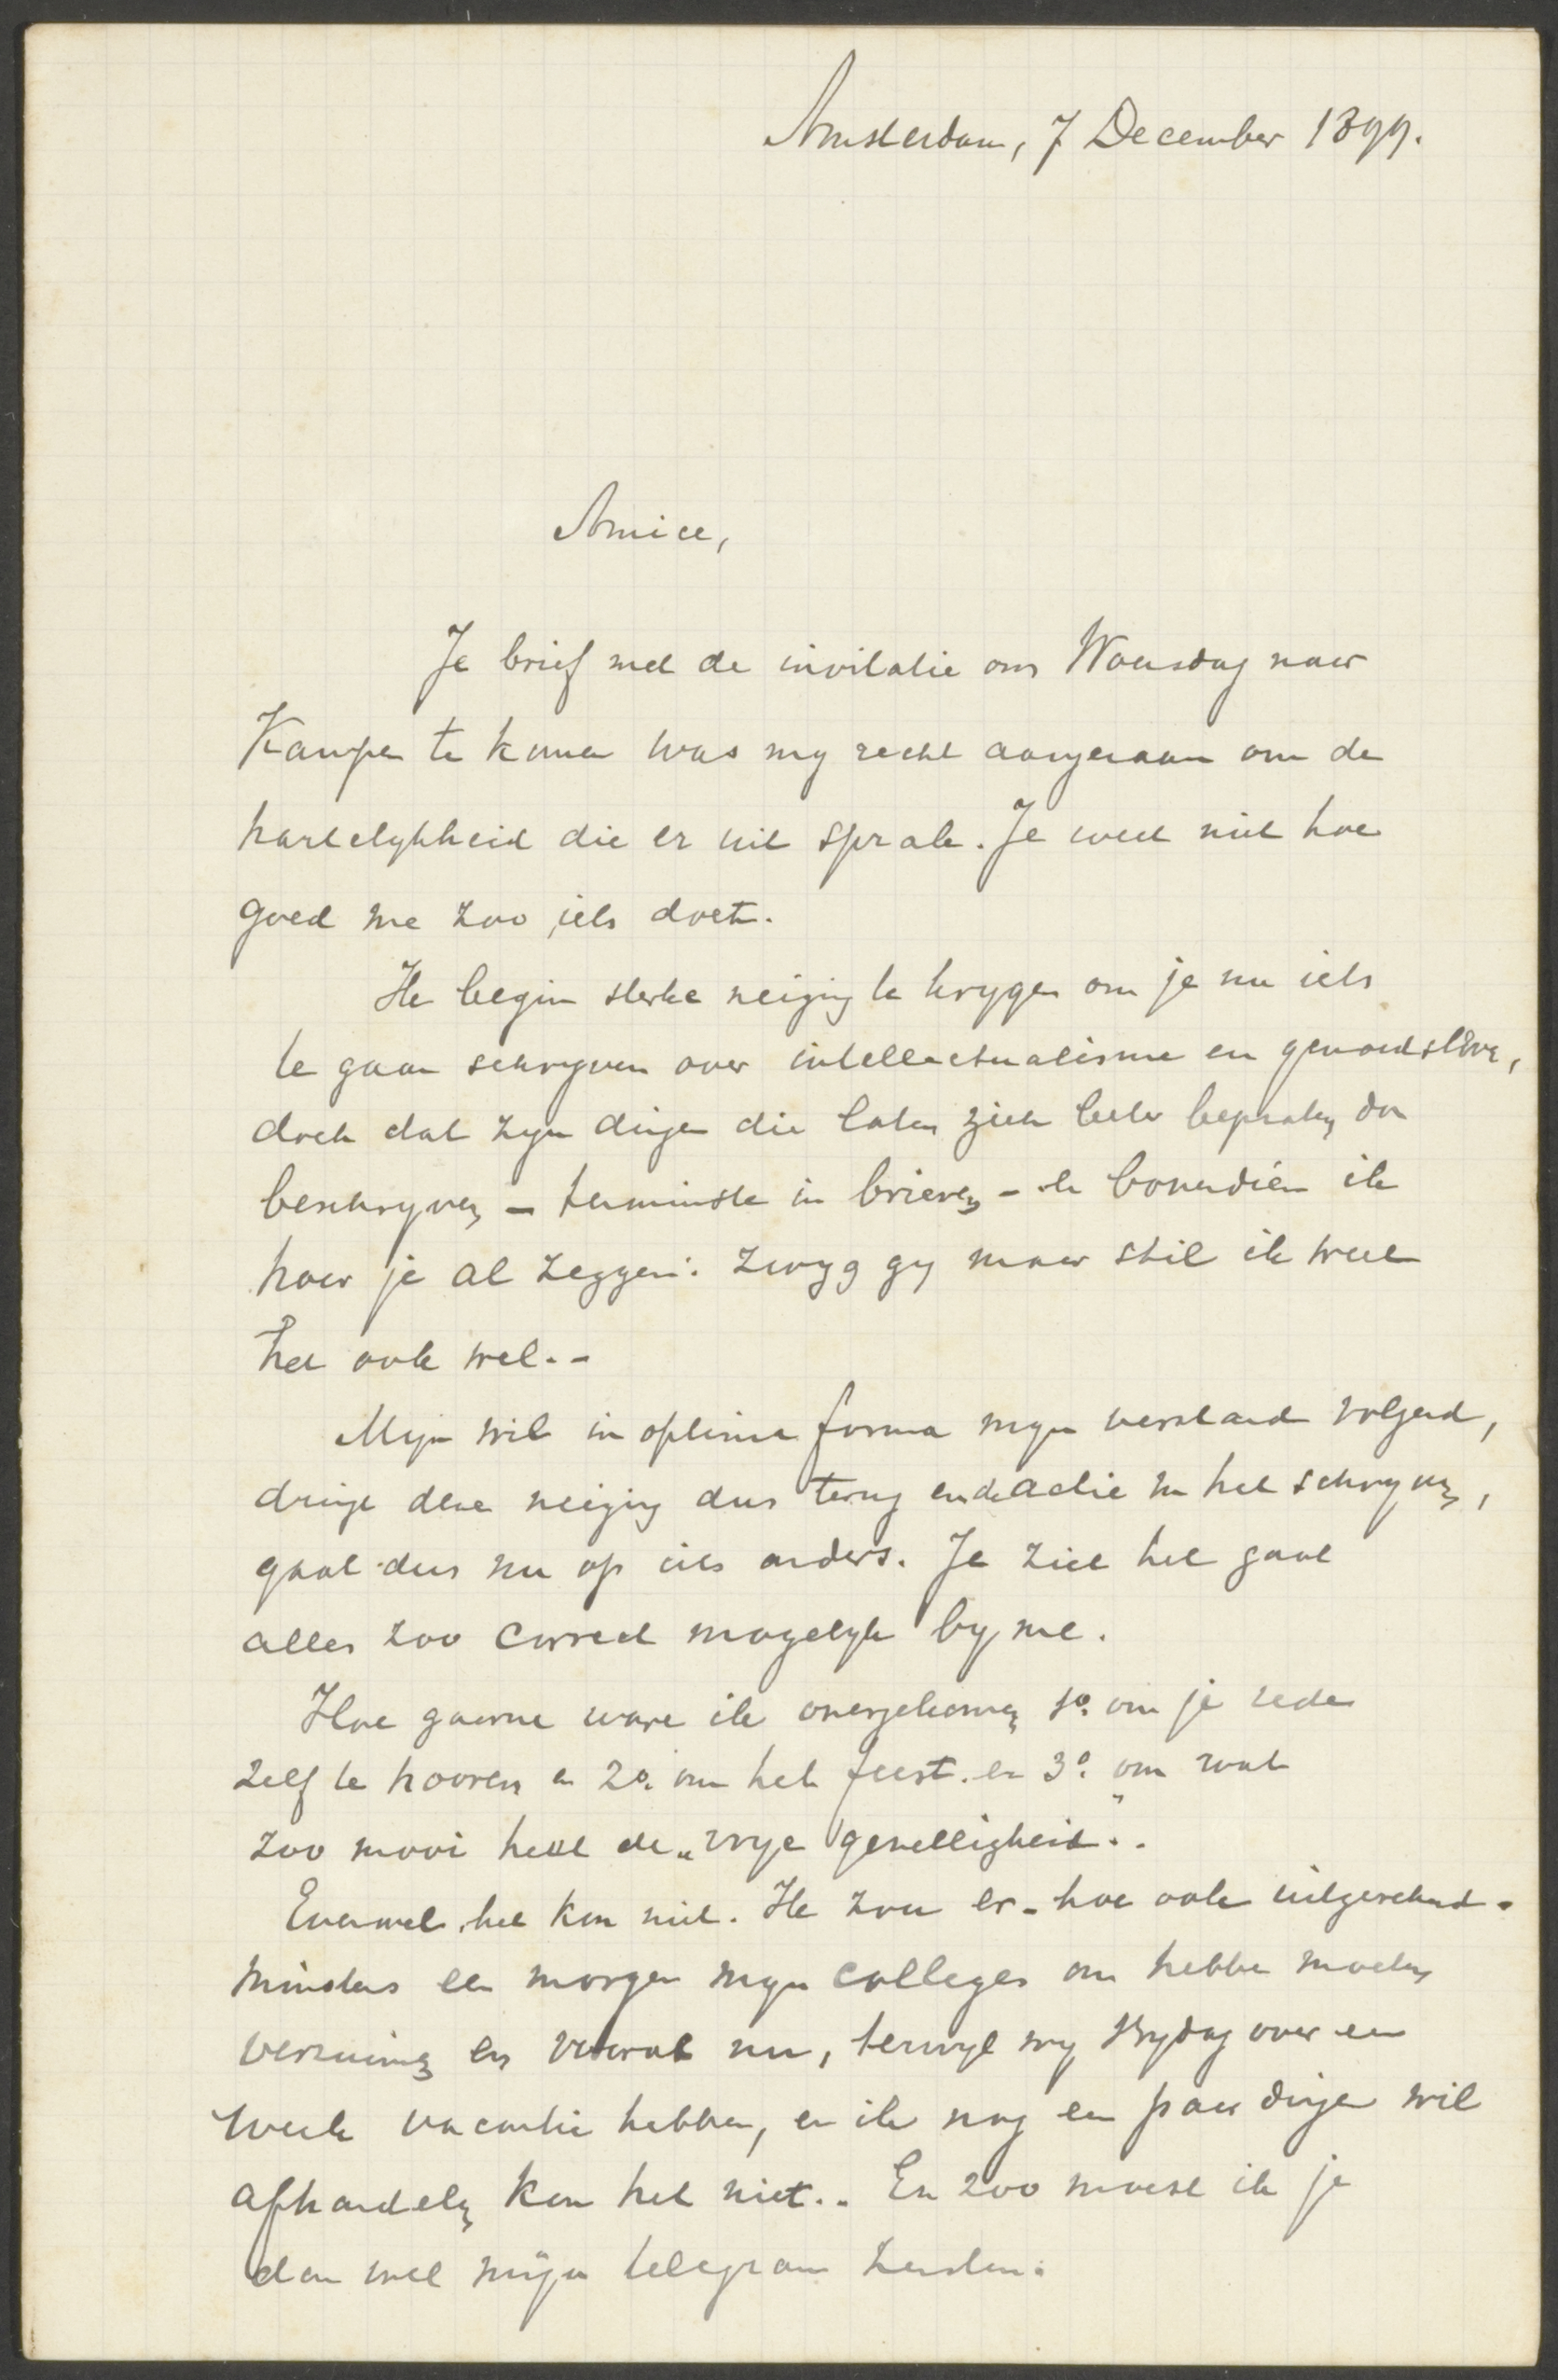 Amsterdam, 7 December 1899.
Amice,
Je brief met de invitatie om Woensdag naar
Kampen te komen was my recht aangenaam om de
hartelykheid die er uit sprak. Je weet niet hoe
goed me zoo iets doet.
Ik begin sterke neiging te krygen om je nu iets
te gaan schryven over intellectualisme en gemoedsleven,
doch dat zyn dingen die laten zich beter bepraten dan
beschryven – tenminste in brieven – en bovendien ik
hoor je al zeggen: zwyg gy maar stil ik weet
het ook wel. –
Mijn wil in optima forma myn verstand volgend,
dringt deze neiging dus terug en de actie in het schryven,
gaat dus nu op iets anders. Je ziet het gaat
alles zoo correct mogelyk by me.
Hoe gaarne ware ik overgekomen 1o. om je rede
zelf te hooren en 2o. om het feest. en 3o. om wat
zoo mooi heet de „vrye gezelligheid"..
Evenwel het kon niet. Ik zou er – hoe ook uitgerekend –
minstens een morgen myn colleges om hebben moeten
verzuimen en vooral nu, terwyl wy Vrydag over een
week vacantie hebben, en ik nog een paar dingen wil
afhandelen kon het niet.. En zoo moest ik je
dan wel mijn telegram zenden.